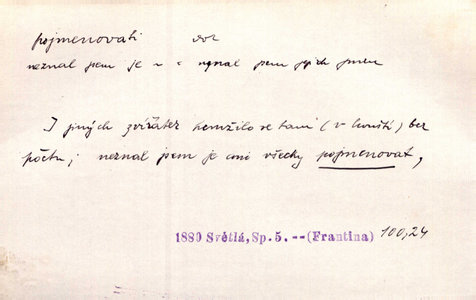 pojmenovati dok
neznal jsem je ~ = neznal jsem jejich jmen
I jiných zvířátek hemžilo se tam (v houští) bez
počtu; neznal jsem je ani všecky pojmenovat,
1880 Světlá, Sp. 5. -- (Frantina) 100,24